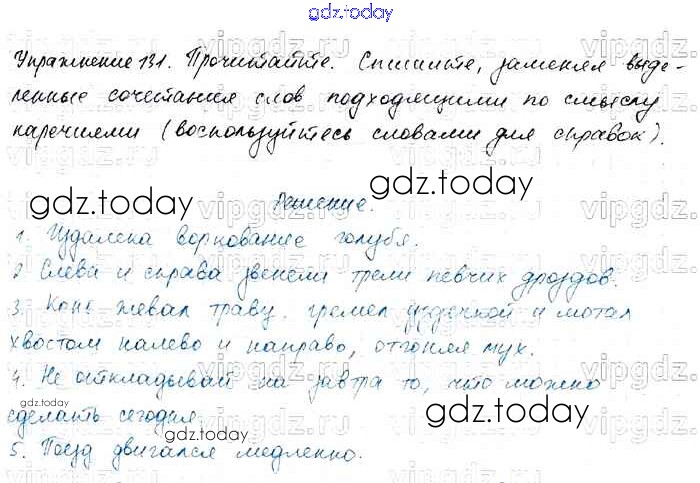 gdz.today
Упражнение 131. Прочитайте. Спишите, заменяя выде-
ленные сочетания слов подходящими по смыслу
наречиями (воспользуйтесь словами для справок).
Решение.
1. Издалека воркование голубя.
2. Слева и справа звенели трели певчих дроздов.
3. Конь жевал траву, гремел уздечкой и мотал
хвостом налево и направо, отгоняя мух.
4. Не откладывай на завтра то, что можно
сделать сегодня.
5. Поезд двигался медленно.
gdz.today
gdz.today
gdz.today
gdz.today
vipgdz.ru